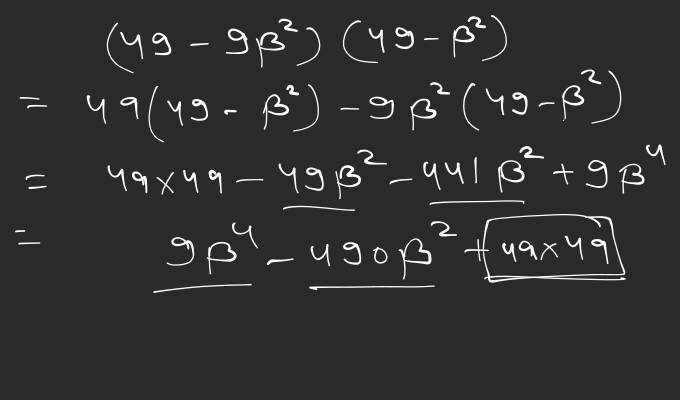 (49 - 9β²) (49 - β²)
= 49(49 - β²) - 9β²(49 - β²)
= 49×49 - 49β² - 441β² + 9β⁴
= 9β⁴ - 490β² + 49×49